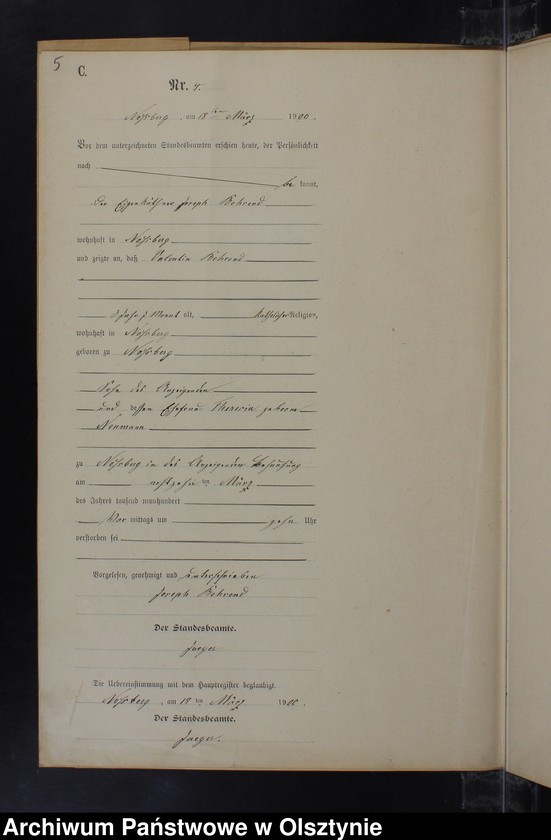 5
C.
Nr. 4.
Nossberg, am 18ten März 1900.
Vor dem unterzeichneten Standesbeamten erschien heute, der Persönlichkeit
nach
be kannt,
der Eigenkäthner Joseph Behrend
wohnhaft in Nossberg
und zeigte an, daß Valentin Behrend
Jahr, Monat alt, katholischer Religion,
wohnhaft in Nossberg
geboren zu Nossberg
Sohn des Anzeigenden
und dessen Ehefrau Theresia geborene
Neumann
zu Nossberg in des Anzeigenden Behausung
am achtzehnten März
des Jahres tausend neunhundert
Vor mittags um zehn Uhr
verstorben sei
Vorgelesen, genehmigt und unterschrieben
Joseph Behrend
Der Standesbeamte.
Jaeger
Die Uebereinstimmung mit dem Hauptregister beglaubigt.
Nossberg, am 18ten März 1900.
Der Standesbeamte.
Jaeger.
Archiwum Państwowe w Olsztynie